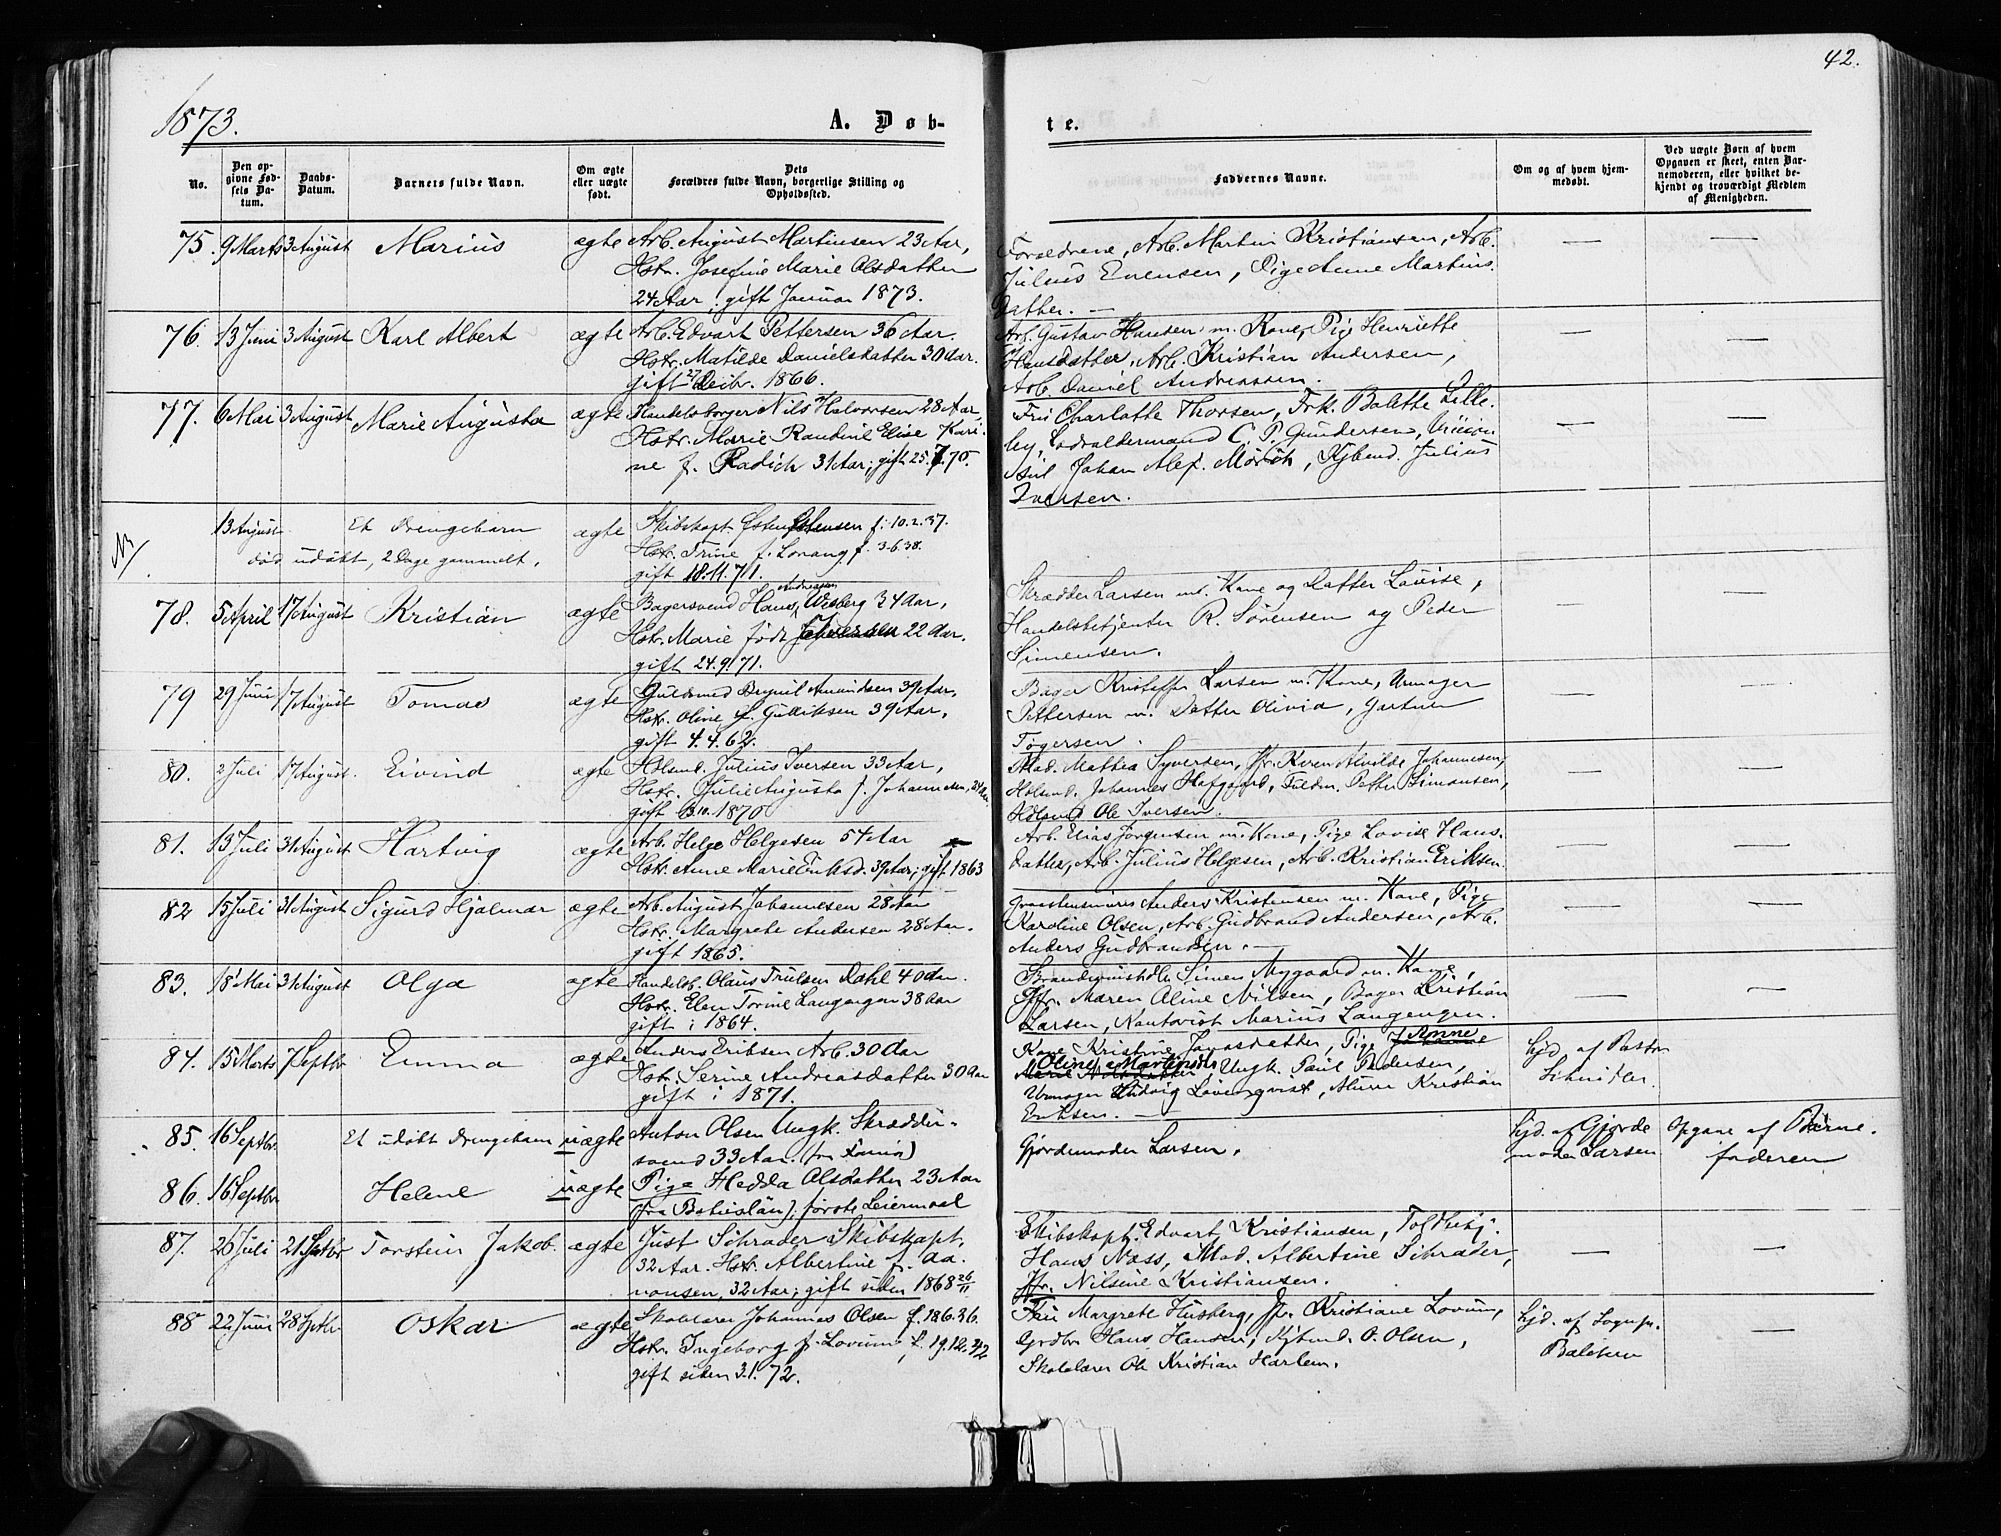 42.
1873.
A. Døb-
te.
No.
Den op-
givne Fød-
sels Da-
tum.
Daabs-
Datum.
Barnets fulde Navn.
Om ægte
eller uægte
født.
Dets
Forældres fulde Navn, borgerlige Stilling og
Opholdssted.
Faddernes Navne.
Om og af hvem hjem-
medøbt.
Ved uægte Børn af hvem
Opgaven er skeet, enten Bar-
nemoderen, eller hvilket be-
kjendt og troværdigt Medlem
af Menigheden.
75. 9 Marts 3 August Marius ægte Arb. August Martinsen 23 Aar,
Hstr. Josefine Marie Olsdatter
24 Aar; gift Januar 1873.
Forældrene, Arb. Martin Kristiansen, Arb.
Julius Evensen, Pige Anne Martins-
datter. —
76. 13 Juni 3 August Karl Albert ægte Arb. Edvart Pettersen 36 Aar.
Hstr. Matilde Danielsdatter 30 Aar.
gift 27 Decbr. 1866.
Arb. Gustav Hansen m. Kone, Pige Henriette
Hansdatter, Arb. Kristian Andersen,
Arb. Daniel Andreassen.
77. 6 Mai 3 August Marie Augusta ægte Handelsborger Nils Halvorsen 28 Aar,
Hstr. Marie Randine Elise Kari-
ne f. Radich 31 Aar; gift 25.7.70.
Fru Charlotte Thorsen, Frk. Balette Lille-
by, Lodsoldermand C. P. Gundersen,
Johan Alex. Mørch, Kjbmd. Julius
Iversen.
N/
13 August Et Drengebarn ægte Skibskapt. Østen f. 10.2.37.
død udøbt, 2 Dage gammelt.
Hstr. Trine f. Lorang f. 3.6.38.
gift 18.11.71.
78. 5 April 17 August Kristian ægte Bagersvend Hans Andreasen Wesberg 34 Aar,
Hstr. Marie født 22 Aar.
gift 24.9.71.
Skrædder Larsen m. Kone og Datter Louise,
Handelsbetjenter R. Sørensen og Peder
Simensen.
79 29 Juni 17 August Tomas ægte Guldsmed Brynil Amundsen 39 Aar,
Hstr. Oline f. Gulliksen 39 Aar,
gift 4.4.62.
Bager Kristoffer Larsen m. Kone, Urmager
Pettersen m. Datter Olivia, Gartner
Tøgersen.
80. 2 Juli 17 August. Eivind ægte Hdlsmd. Julius Iversen 33 Aar,
Hstr. Julie Augusta f. Johannesen, 24 Aar
gift 1870
Mad. Mathea Syversen, Jfr. Karen Alvilde Johannesen,
Hdlsmd. Johannes Hafgaard, Fuldm. Petter Simonsen,
Hdlsmd. Ole Iversen.
81. 13 Juli 31 August Hartvig ægte Arb. Helge Helgesen 54 Aar
Hstr. Anne Marie Eriksd. 39 Aar; gift 1863
Arb. Elias Jørgensen m. Kone, Pige Lovise Hans-
datter, Arb. Julius Helgesen, Arb. Kristian Eriksen.
82 15 Juli 31 August Sigurd Hjalmar ægte Arb. August Johannesen 28 Aar
Hstr. Margrete Andersen 28 Aar.
gift 1865.
Anders Kristensen m. Kone, Pige
Karoline Olsen, Arb. Gudbrand Andersen, Arb.
Anders Gudbrandsen. —
83. 18 Mai 31 August Olga ægte Handelsb. Olaus Trulsen Dahl 40 Aar.
Hstr. Elen Torine Langangen 38 Aar
gift i 1864.
Simen Nygaard m. Kone,
Jfr. Maren Aline Nilsen, Bager Kristian
Larsen, Kantorist Marius Langengen.
84. 15 Marts 7 Septbr Emma ægte Anders Eriksen Arb. 30 Aar
Hstr. Serine Andreasdatter 30 Aar
gift i 1871.
Kone Kristine Jonasdatter, Pige Anne
Oline Martinsd. Ungk. Paul Pedersen,
Urmager Ludvig Løvenqvist, Kristian
Eriksen. —
hjd. af Pastor
Schnitler.
85. 16 Septbr. Et udøbt Drengebarn uægte Anton Olsen Ungk. Skrædder-
svend 33 Aar.
Gjordemoder Larsen.
hjd. af Gjorde
moder Larsen
Opgave af Barne-
faderen
86. 16 Septbr Helene uægte Pige Hedda Olsdatter 23 Aar
(fra Bohuslän); første Leiermaal
87. 26 Juli 21 Septbr Torstein Jakob. ægte Just Schrader Skibskapt.
32 Aar. Hstr. Albertine f. Aa-
nonsen, 32 Aar; gift siden 1868 26/11
Skibskapt. Edvart Kristiansen, Toldbetj.
Hans Nass, Mad. Albertine Schrader,
Jfr. Nilsine Kristiansen.
88 22 Juni 28 Septbr Oskar ægte Skolelærer Johannes Olsen f. 18.6.36.
Hstr. Ingeborg f. Lovum, f. 19.12.42
gift siden 3.1.72.
Fru Margrete Husberg, Jfr. Kristiane Lovum,
Grdbr. Hans Hansen, Kjbmd. O. Olsen,
Skolelærer Ole Kristian Harlem.
hjd. af Sognepr.
Balchen